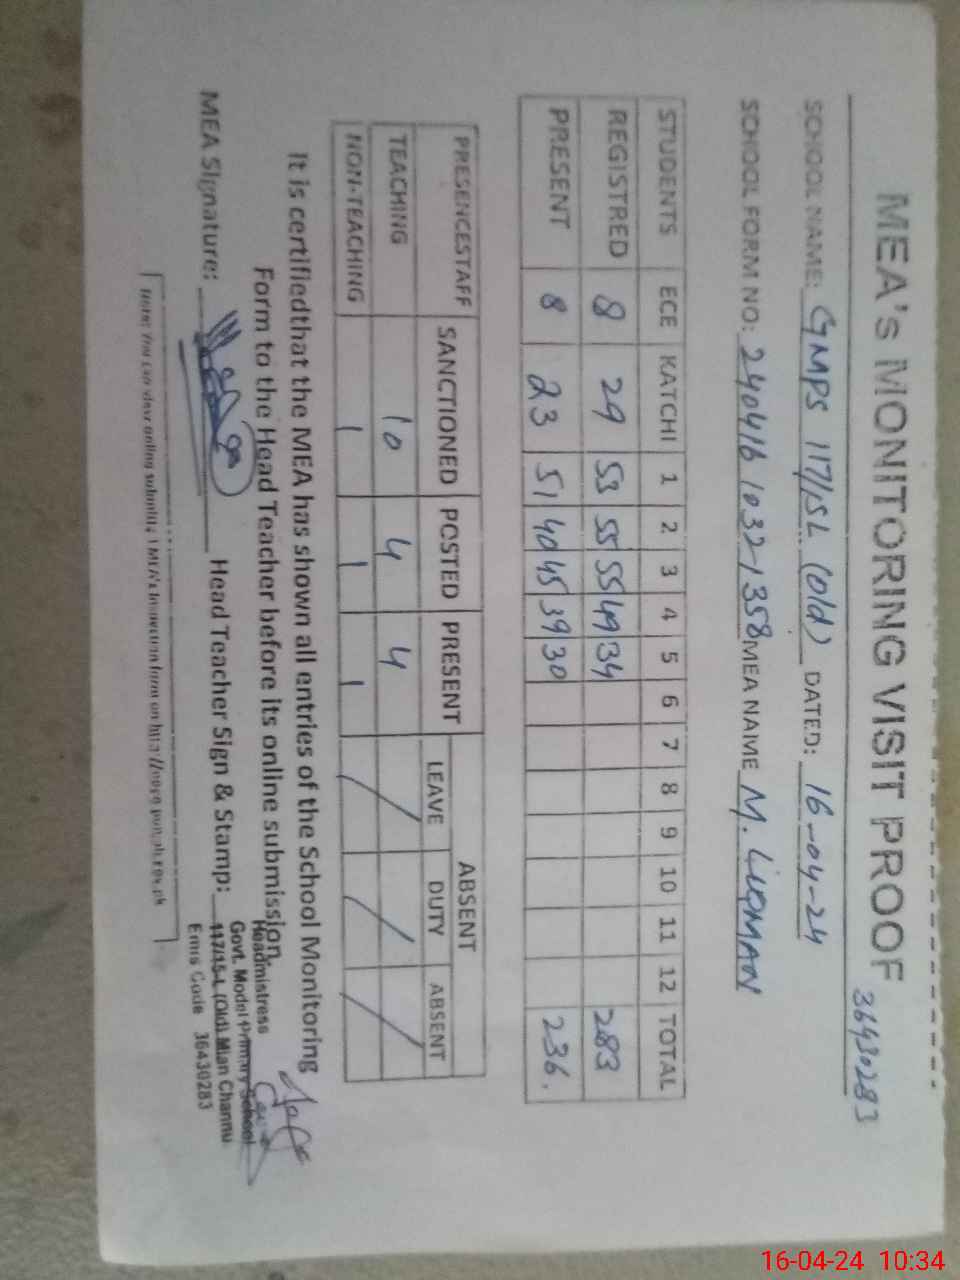 MEA's MONITORING VISIT PROOF
36430283
SCHOOL NAME: GMPS 117/15L (Old) DATED: 16-04-24
SCHOOL FORM NO: 240416 1032-1358 MEA NAME M. LUQMAN
STUDENTS ECE KATCHI 1 2 3 4 5 6 7 8 9 10 11 12 TOTAL
REGISTRED 8 29 53 55 55 49 34 283
PRESENT 8 23 51 40 45 39 30 236.
PRESENCESTAFF SANCTIONED POSTED PRESENT ABSENT
LEAVE DUTY ABSENT
TEACHING 10 4 4 / / /
NON-TEACHING 1 1 1
It is certifiedthat the MEA has shown all entries of the School Monitoring
Form to the Head Teacher before its online submission.
MEA Signature: Head Teacher Sign & Stamp:
Headmistress
Govt. Model Primary School
117/15-L (Old) Mian Channu
Emis Code 36430283
Note: You can view online submitted MEA's Inspection form on
16-04-24 10:34